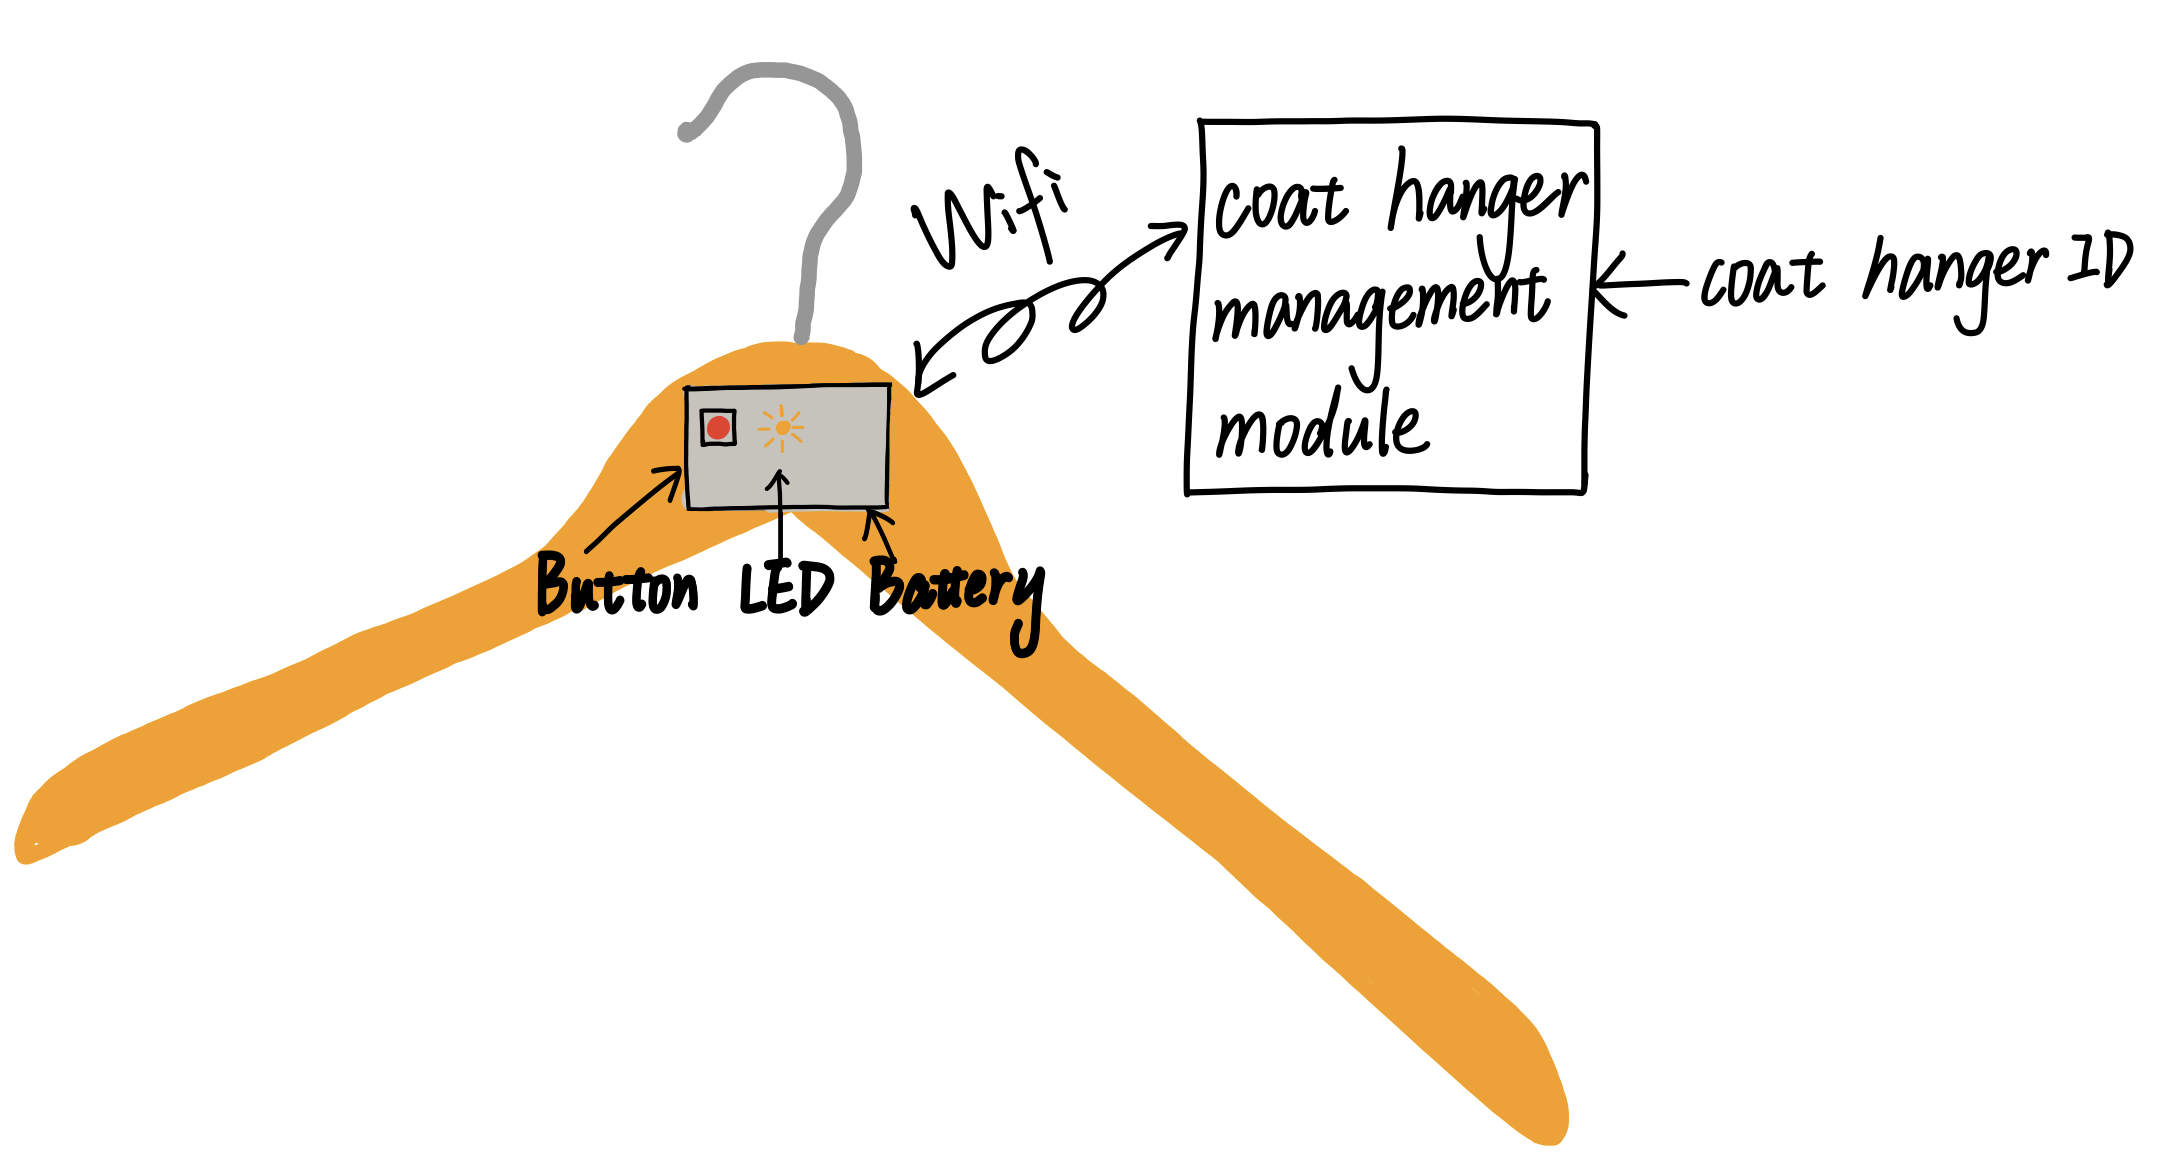 Wifi
coat hanger
management
module
coat hanger ID
Button LED Battery